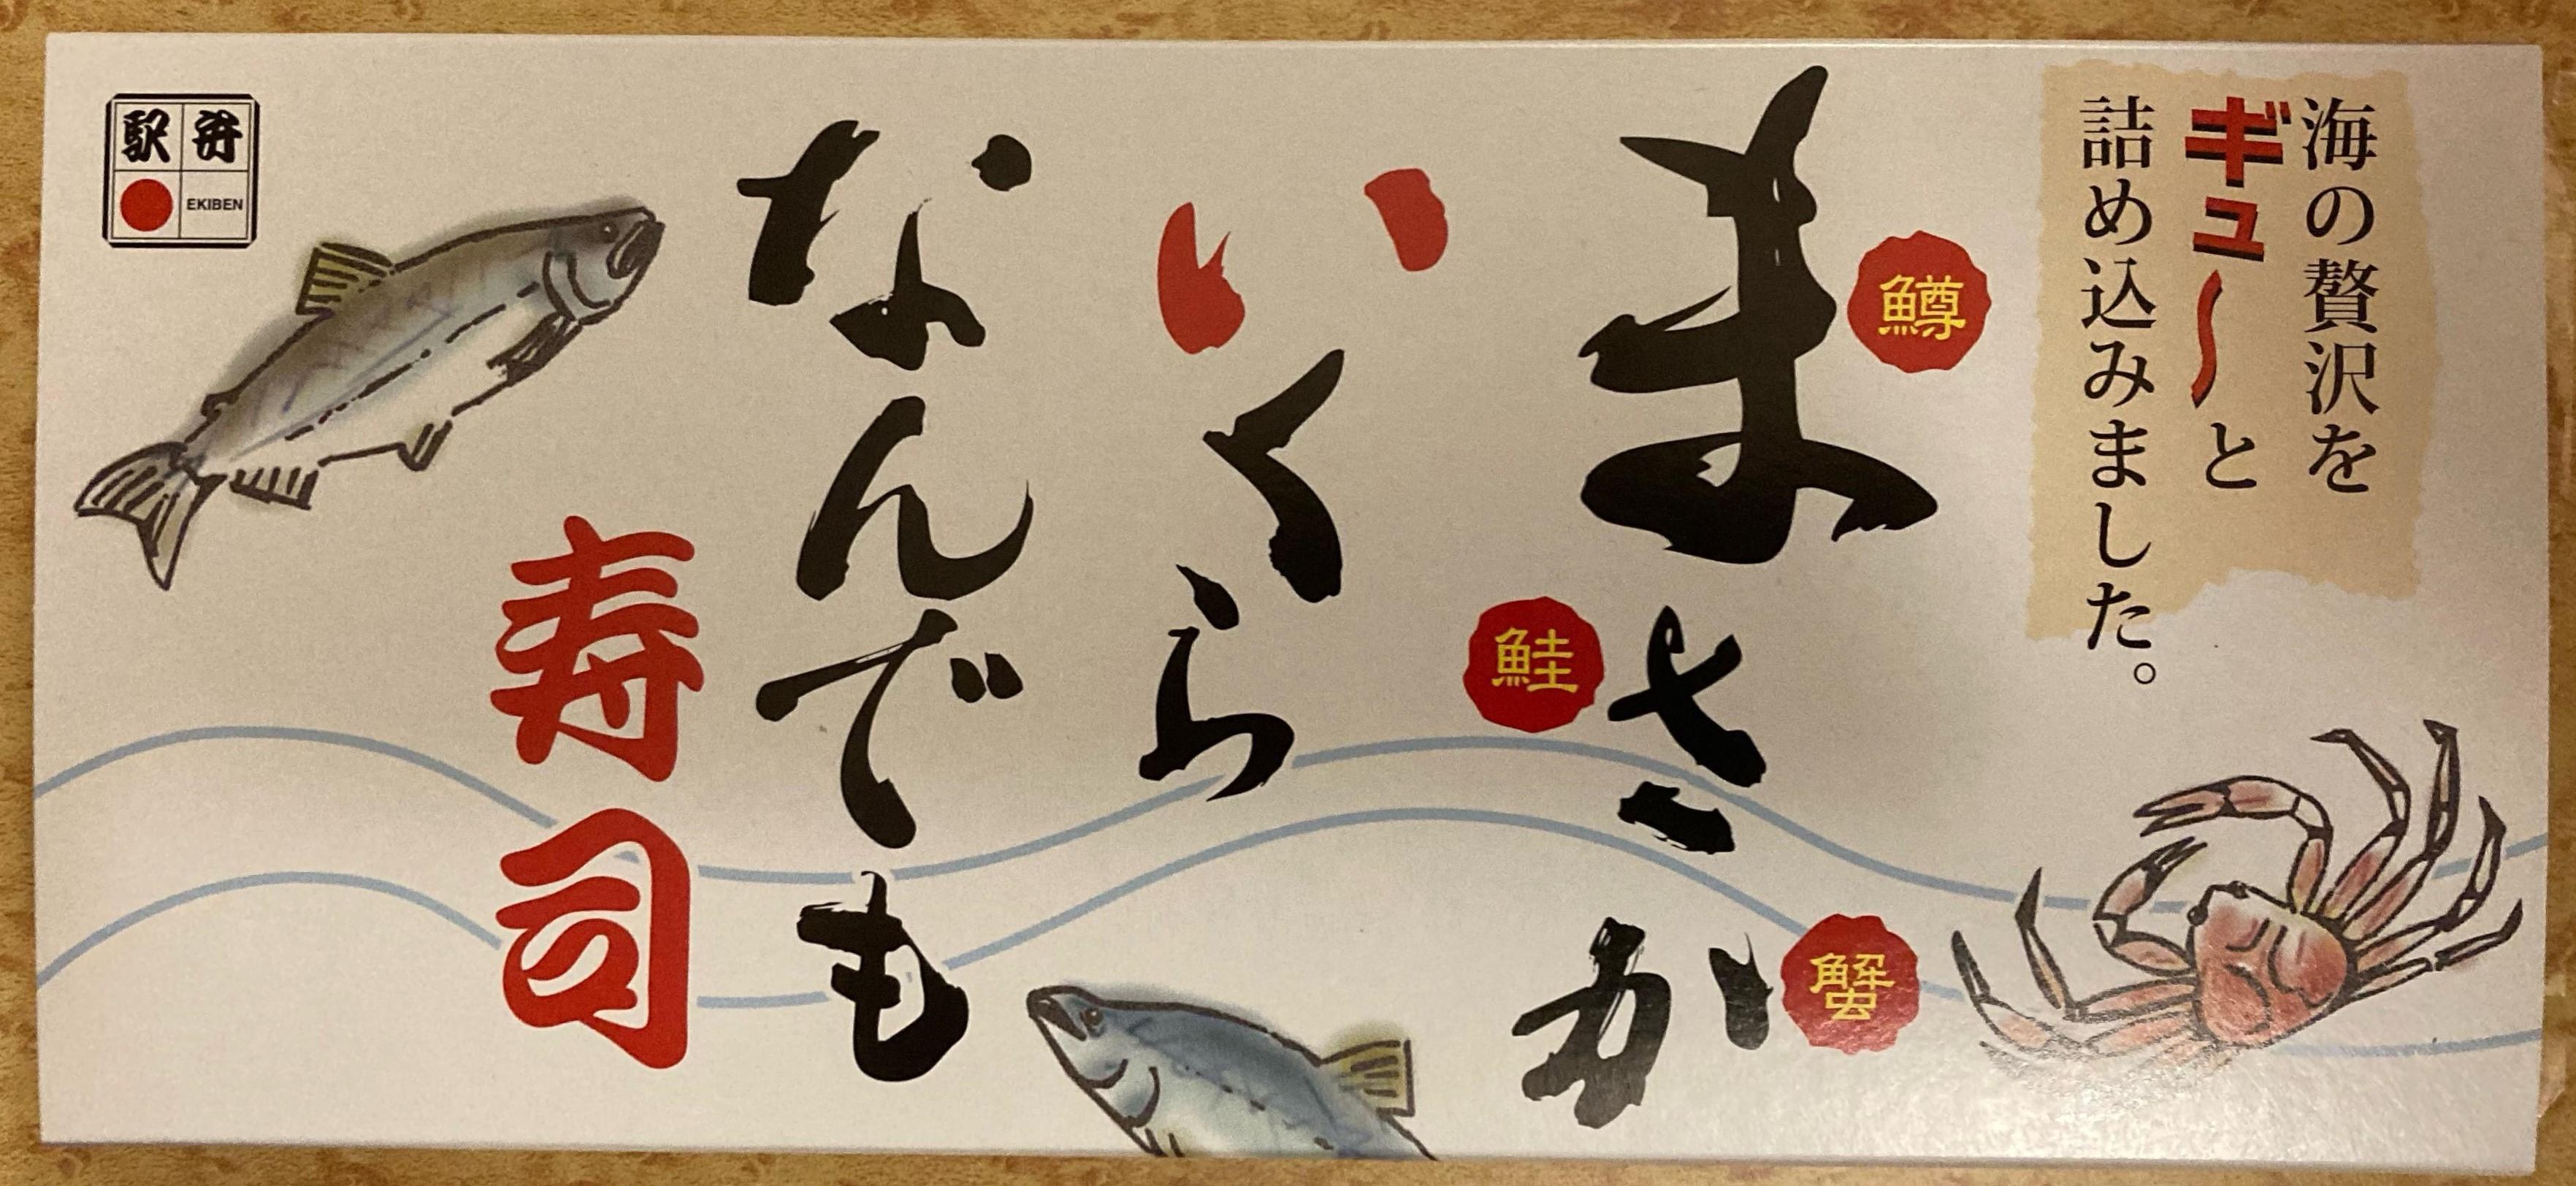 海の贅沢を
ギュ〜と
詰め込みました。
鱒
鮭
蟹
まさか
いくら
なんでも
寿司
駅弁
EKIBEN